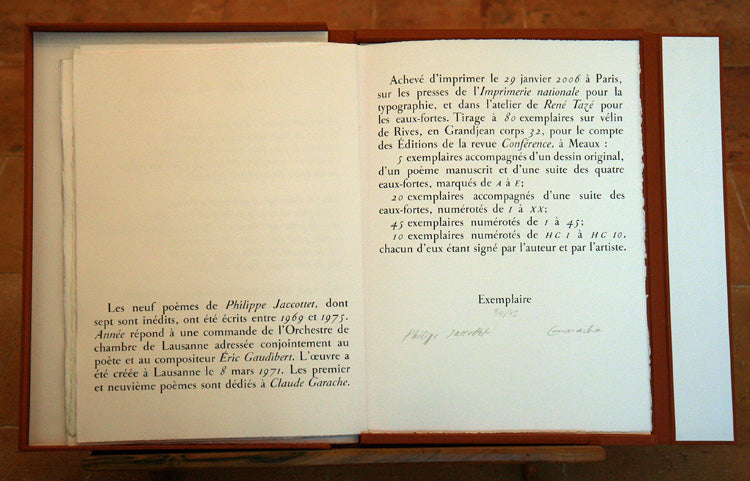 Les neuf poèmes de Philippe Jaccottet, dont
sept sont inédits, ont été écrits entre 1969 et 1975.
Année répond à une commande de l'Orchestre de
chambre de Lausanne adressée conjointement au
poète et au compositeur Éric Gaudibert. L'œuvre a
été créée à Lausanne le 8 mars 1971. Les premier
et neuvième poèmes sont dédiés à Claude Garache.
Achevé d'imprimer le 29 janvier 2006 à Paris,
sur les presses de l'Imprimerie nationale pour la
typographie, et dans l'atelier de René Tazé pour
les eaux-fortes. Tirage à 80 exemplaires sur vélin
de Rives, en Grandjean corps 32, pour le compte
des Éditions de la revue Conférence, à Meaux :
5 exemplaires accompagnés d'un dessin original,
d'un poème manuscrit et d'une suite des quatre
eaux-fortes, marqués de A à E;
20 exemplaires accompagnés d'une suite des
eaux-fortes, numérotés de I à XX;
45 exemplaires numérotés de 1 à 45;
10 exemplaires numérotés de HC 1 à HC 10,
chacun d'eux étant signé par l'auteur et par l'artiste.
Exemplaire
Philippe Jaccottet Garache